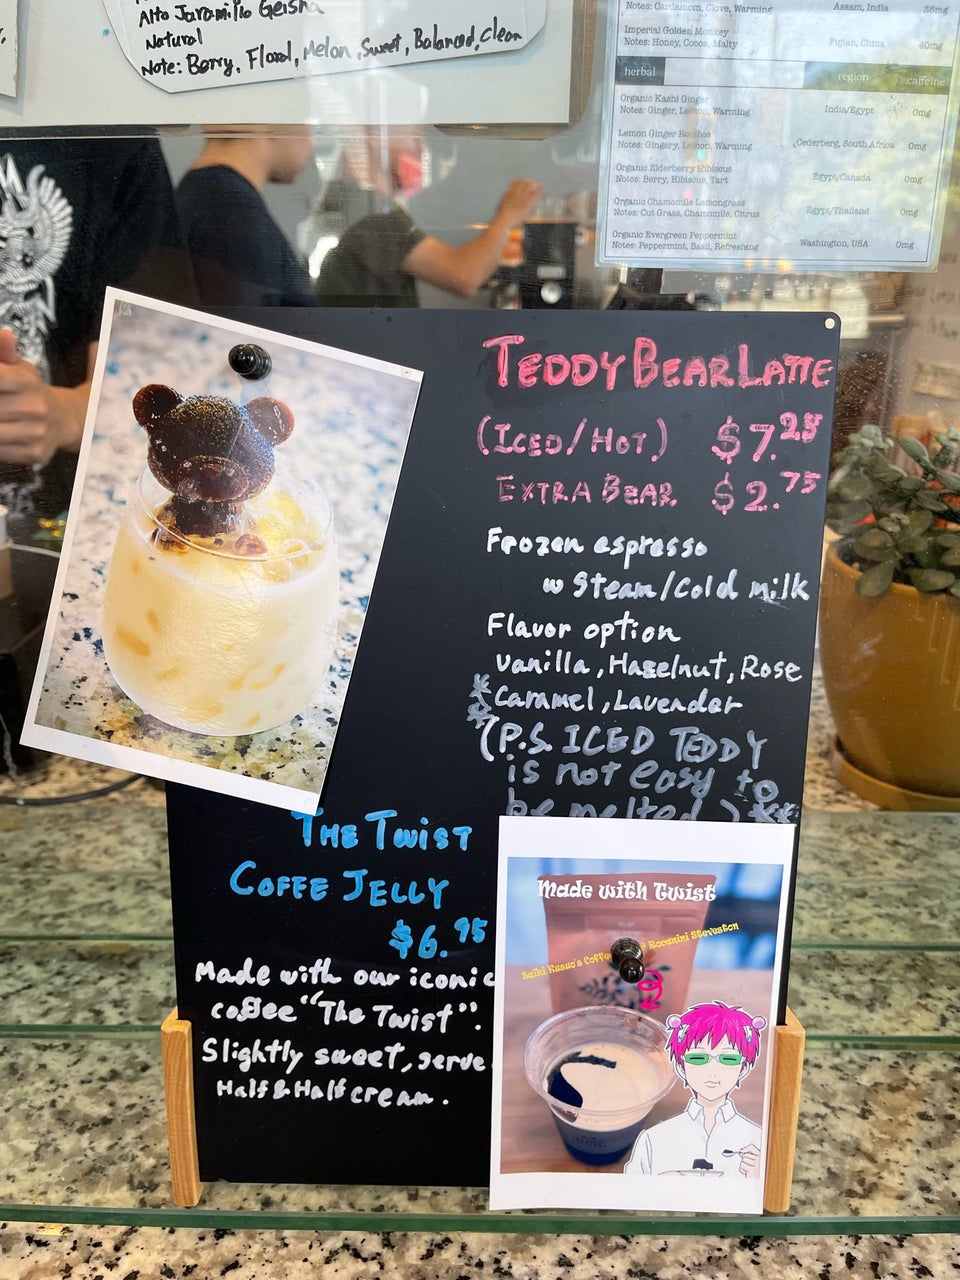 Alto Jaramillo Geisha
Natural
Note: Berry, Floral, Melon, Sweet, Balanced, Clean
Notes: Cardamom, Clove, Warming Assam, India 38mg
Imperial Golden Monkey
Notes: Honey, Cocoa, Malty Fujian, China 40mg
herbal region caffeine
Organic Kashi Ginger
Notes: Ginger, Lemon, Warming India/Egypt 0mg
Lemon Ginger Rooibos
Notes: Gingery, Lemon, Warming Cederberg, South Africa 0mg
Organic Elderberry Hibiscus
Notes: Berry, Hibiscus, Tart Egypt/Canada 0mg
Organic Chamomile Lemongrass
Notes: Cut Grass, Chamomile, Citrus Egypt/Thailand 0mg
Organic Evergreen Peppermint
Notes: Peppermint, Basil, Refreshing Washington, USA 0mg
TEDDY BEAR LATTE
(ICED/HOT) $7.25
EXTRA BEAR $2.75
Frozen espresso
w Steam/Cold milk
Flavor option
Vanilla, Hazelnut, Rose
Caramel, Lavender
**(P.S. ICED TEDDY
is not easy to
be melted.)**
THE TWIST
COFFE JELLY
$6.95
Made with our iconic
coffee "The Twist".
Slightly sweet, serve
Half & Half cream.
Made with Twist
Saiki Kusuo's Coffee @ Rocanini Steveston